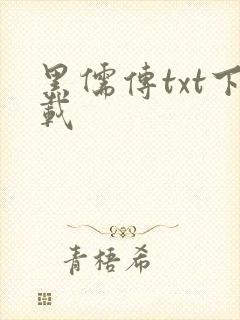 黑儒傳txt下
載
青梧希